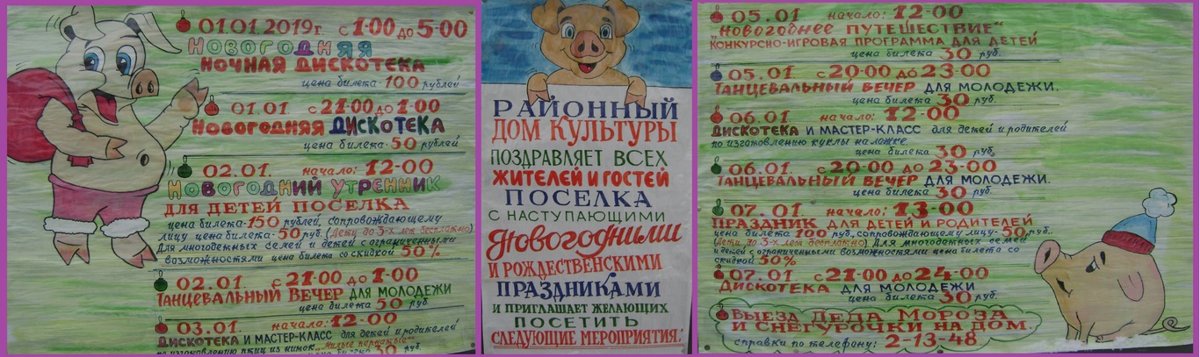 01.01.2019г. с 1-00 до 5-00
НОВОГОДНЯЯ
НОЧНАЯ ДИСКОТЕКА
цена билета 100 рублей
01.01 с 21-00 до 1-00
НОВОГОДНЯЯ ДИСКОТЕКА
цена билета - 50 рублей
02.01. начало: 12-00
НОВОГОДНИЙ УТРЕННИК
ДЛЯ ДЕТЕЙ ПОСЕЛКА
цена билета - 150 рублей, сопровождающему
лицу цена билета - 50 руб. (Дети до 3-х лет бесплатно)
Для многодетных семей и детей с ограниченными
возможностями цена билета со скидкой 50%
02.01 с 21-00 до 1-00
ТАНЦЕВАЛЬНЫЙ ВЕЧЕР ДЛЯ МОЛОДЕЖИ
цена билета 50 руб.
03.01. начало: 12-00
ДИСКОТЕКА И МАСТЕР-КЛАСС для детей и родителей
по изготовлению птиц из ниток
РАЙОННЫЙ
ДОМ КУЛЬТУРЫ
ПОЗДРАВЛЯЕТ ВСЕХ
ЖИТЕЛЕЙ И ГОСТЕЙ
ПОСЕЛКА
С НАСТУПАЮЩИМИ
НОВОГОДНИМИ
И РОЖДЕСТВЕНСКИМИ
ПРАЗДНИКАМИ
И ПРИГЛАШАЕТ ЖЕЛАЮЩИХ
ПОСЕТИТЬ
СЛЕДУЮЩИЕ МЕРОПРИЯТИЯ:
05.01 начало: 12-00
"НОВОГОДНЕЕ ПУТЕШЕСТВИЕ"
КОНКУРСНО-ИГРОВАЯ ПРОГРАММА ДЛЯ ДЕТЕЙ
цена билета 30 руб.
05.01. с 20-00 до 23-00
ТАНЦЕВАЛЬНЫЙ ВЕЧЕР ДЛЯ МОЛОДЕЖИ.
цена билета 30 руб.
06.01 начало: 12-00
ДИСКОТЕКА И МАСТЕР-КЛАСС для детей и родителей
по изготовлению куклы на ложке
цена билета 30 руб.
06.01 с 20-00 до 23-00
ТАНЦЕВАЛЬНЫЙ ВЕЧЕР ДЛЯ МОЛОДЕЖИ.
цена билета 30 руб.
07.01 начало: 13-00
ПРАЗДНИК ДЛЯ ДЕТЕЙ И РОДИТЕЛЕЙ
цена билета 100 руб, сопровождающему лицу - 50 руб.
(Дети до 3-х лет бесплатно) Для многодетных семей
и детей с ограниченными возможностями цена билета со
скидкой 50%
07.01 с 21-00 до 24-00
ДИСКОТЕКА ДЛЯ МОЛОДЕЖИ
цена билета 30 руб.
ВЫЕЗД ДЕДА МОРОЗА
И СНЕГУРОЧКИ НА ДОМ.
справки по телефону: 2-13-48